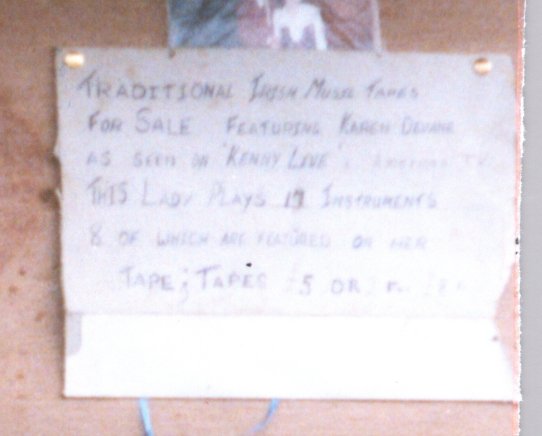 TRADITIONAL IRISH MUSIC TAPES
FOR SALE FEATURING KAREN DEVANE
AS SEEN ON 'KENNY LIVE'
THIS LADY PLAYS INSTRUMENTS
8 OF WHICH ARE FEATURED ON HER
TAPE; TAPES £5 OR